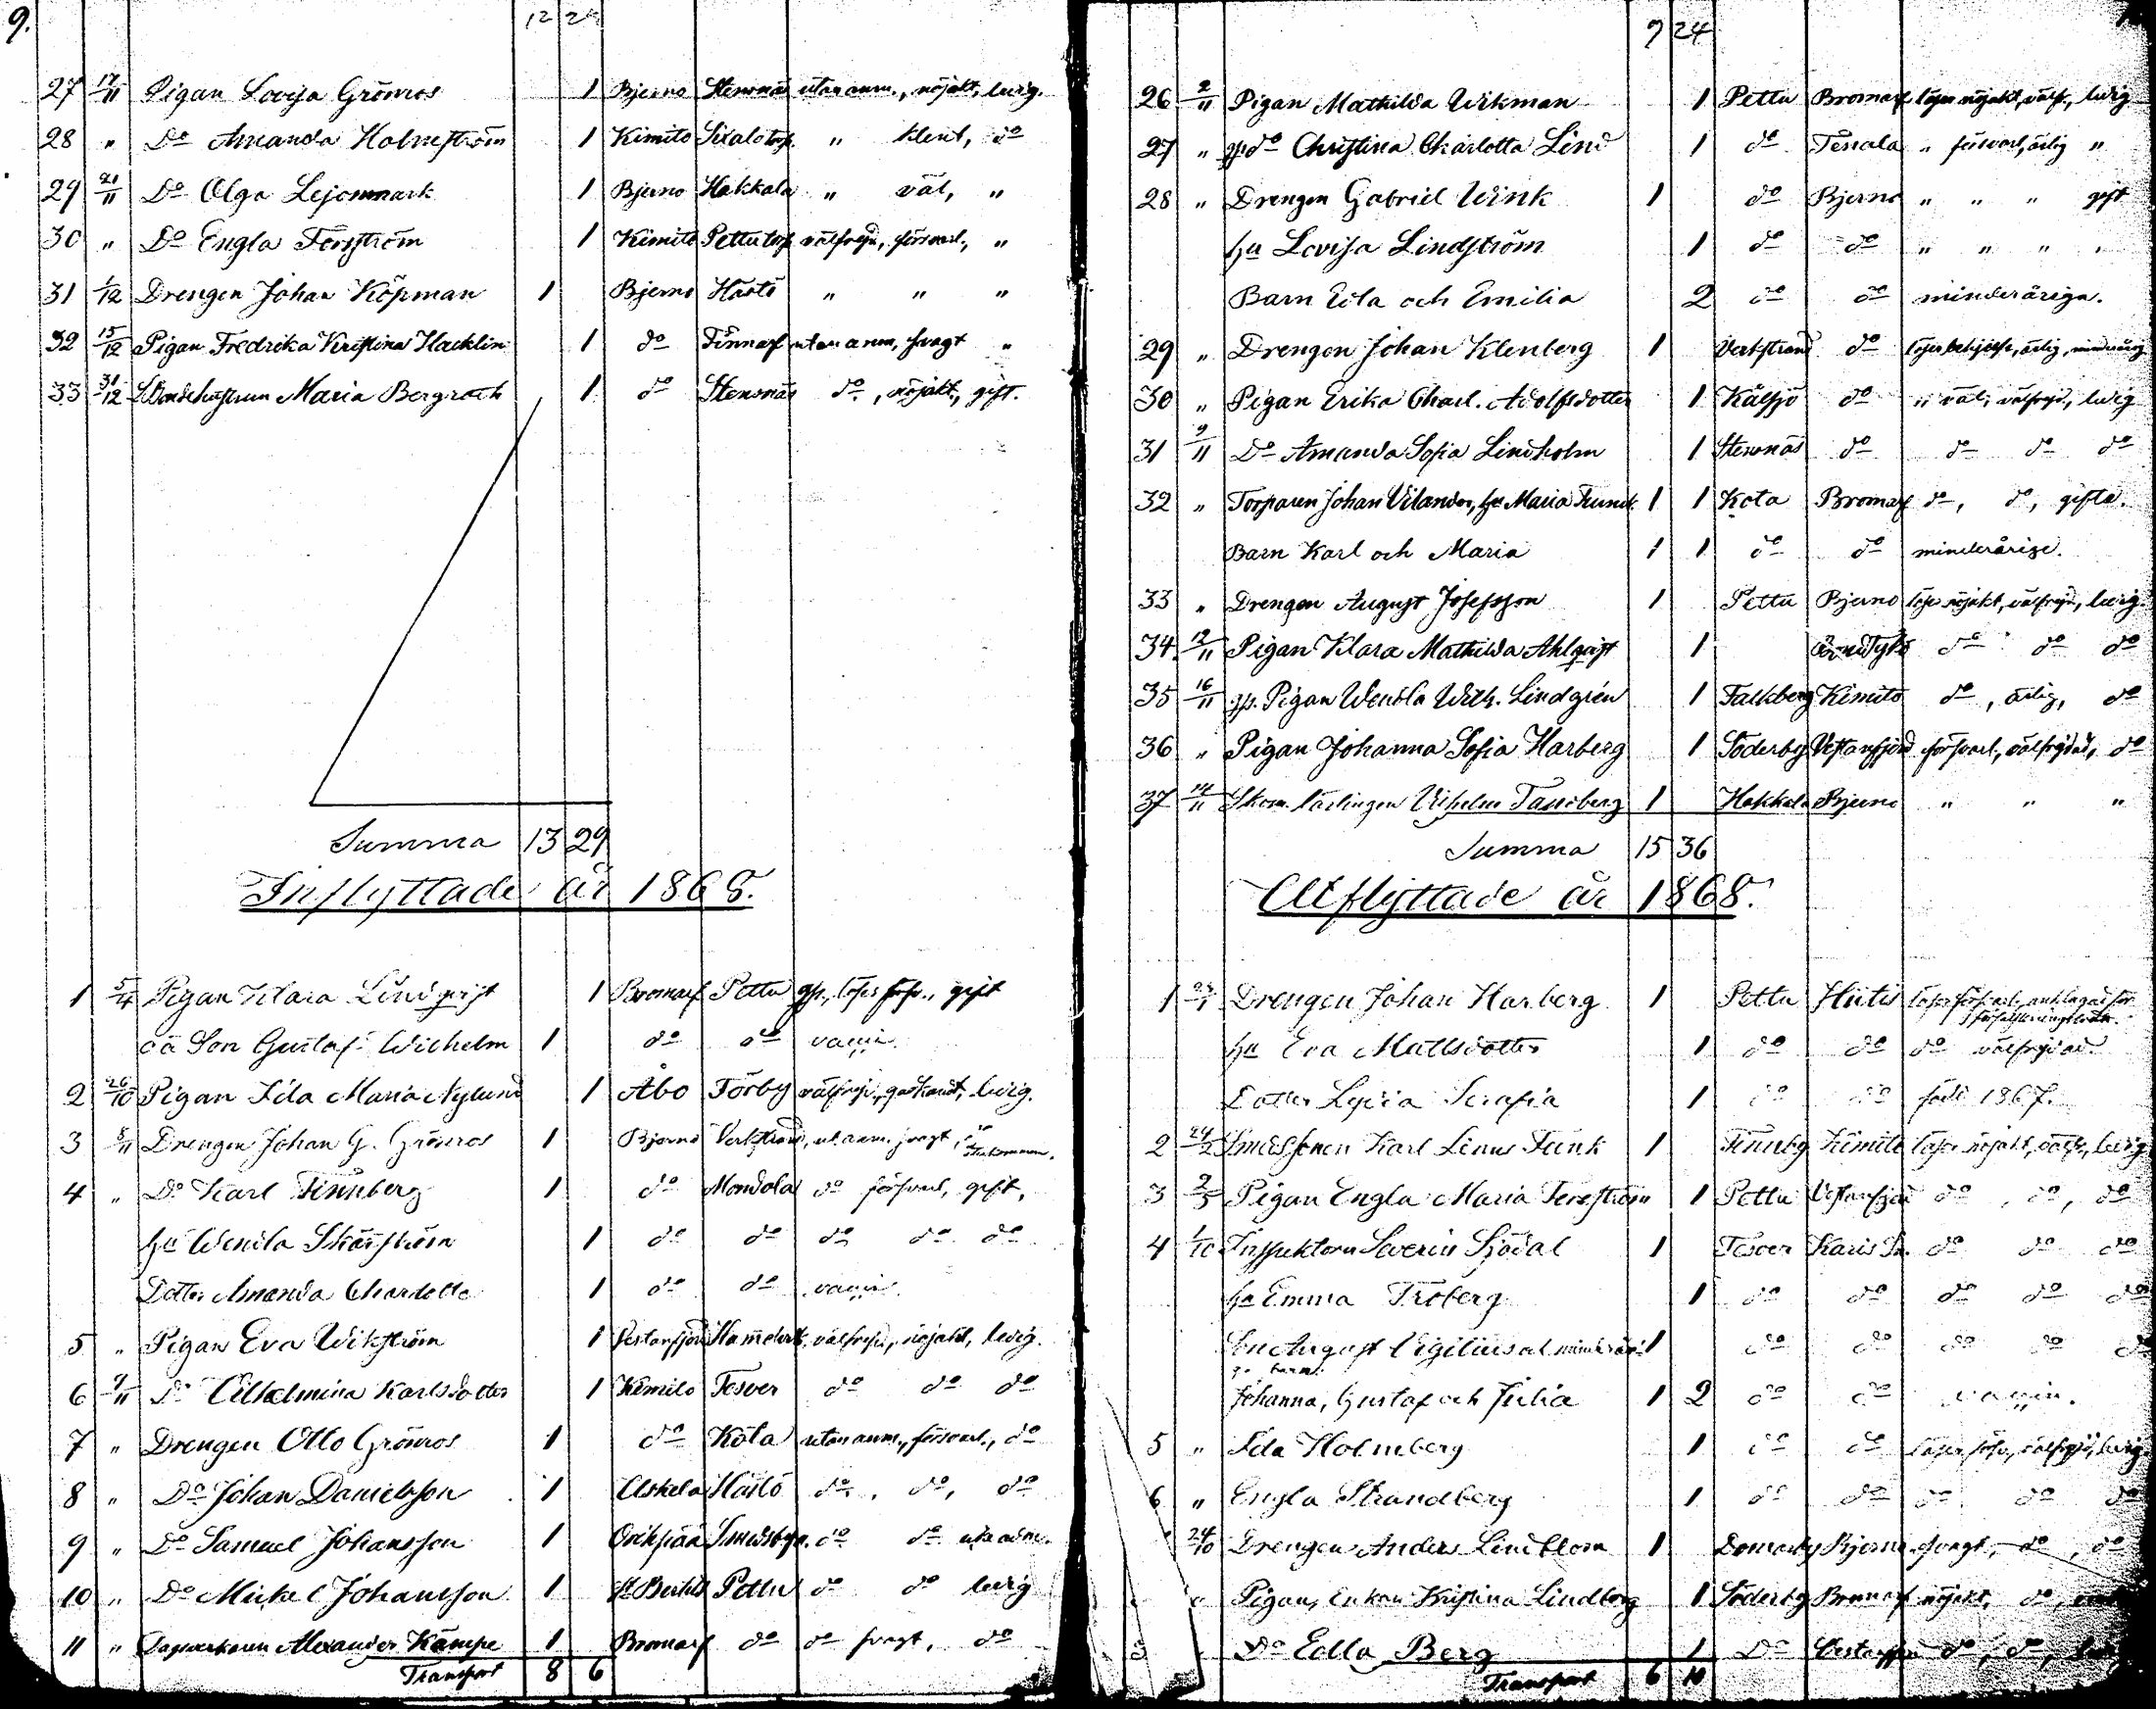 9.
12 24
27 17/11 Pigan Lovisa Grönros 1 Bjerno Stensnäs utan anm., nöjakt, ledig.
28 " Do Amanda Holmström 1 Kimito " klent, do
29 21/11 Do Olga Lejonmark 1 Bjerno Hakkala " väl, "
30 " Do Engla Forsström 1 Kimito Pettu välfrejd, försvarl., "
31 1/12 Drengen Johan Köpman 1 Bjerno Hästö " " "
32 15/12 Pigan Fredrika Kristina Hacklin 1 do Finnarf utan anm, svagt "
33 31/12 Maria Bergroth 1 do Stensnäs do, nöjakt, gift.
Summa 13 29
Inflyttade år 1868.
1 5/4 Pigan Klara Lindqvist 1 Bromarf Pettu gift
oä Son Gustaf Wilhelm 1 do do
2 26/10 Pigan Ida Maria Nylund 1 Åbo Förby välfrejd, godkänd, ledig.
3 Drengen Johan G. Grönros 1 Bjerno Verkstrand, ut. anm. svagt,
4 " Do Karl Finnberg 1 do Mondola do försvarl, gift,
hu Wendla 1 do do do do do
Dotter Amanda Charlotta 1 do do
5 " Pigan Eva Wikström 1 Vestanfjerd välfrejd, nöjakt, ledig.
6 9/11 Do Vilhelmina Karlsdotter 1 Kimito Tesver do do do
7 " Drengen Otto Grönros 1 do Kota utan anm., försvarl., do
8 " Do Johan Danielsson 1 Uskela Hästö do, do, do
9 " Do Samuel Johansson 1 do do
10 " Do Mickel Johansson 1 St Bertils Pettu do do ledig
11 " Dagsverkaren Alexander Kämpe 1 Bromarf do do svagt, do
Transport 8 6
7 24
26 2/11 Pigan Mathilda Wikman 1 Pettu Bromarf läser nöjakt, välfr., ledig
27 " do Christina Charlotta Lind 1 do Tenala " försvarl, ärlig "
28 " Drengen Gabriel Wink 1 do Bjerno " " " gift
hu Lovisa Lindström 1 do do " " " "
Barn Eda och Emilia 2 do do minderåriga.
29 " Drengen Johan Klenberg 1 Verkstrand do
30 " Pigan Erika Charl. Adolfsdotter 1 Kälsjö do " väl, välfrejd., ledig
31 9/11 Do Amanda Sofia Lindholm 1 Stensnäs do do do do
32 " Torparen Johan Vilander, hu Maria 1 1 Kota Bromarf do, do, gifta.
Barn Karl och Maria 1 1 do do minderårige.
33 " Drengen August Josefsson 1 Pettu Bjerno läser nöjakt, välfrejd, ledig.
34 12/11 Pigan Klara Mathilda Ahlqvist 1 do do do
35 16/11 Pigan Wendla Wilh. Lindgrén 1 Falkberg Kimito do, ärlig, do
36 " Pigan Johanna Sofia Harberg 1 Söderby Vestanfjerd försvarl., välfrejdad, do
37 14/11 lärlingen Vilhelm Tandberg 1 Hakkala Bjerno " " "
Summa 15 36
Utflyttade år 1868.
1 Drengen Johan Harberg 1 Pettu Hitis
hu Eva Mattsdotter 1 do do do välfrejdad.
Dotter Lydia Serafia 1 do do född 1867.
2 24/2 Smedssonen Karl Linus Funk 1 Finnby Kimito läser nöjakt, välfr., ledig
3 2/5 Pigan Engla Maria 1 Pettu Vestanfjerd do, do, do
4 1/10 Inspektorn Severin Sjödal 1 Tesver Karis do do do
hu Emma Fröberg 1 do do do do do
Son August 1 do do do do do
Johanna, Gustaf och Julia 1 2 do do
5 " Ida Holmberg 1 do do läser förs., välfrejd, ledig
6 " Engla Strandberg 1 do do do do do
24/10 Drengen Anders Lindblom 1 Domarby Bjerno svagt, do, do
" Pigan, Enkan Kristina Lindberg 1 Söderby Bromarf nöjakt, do,
Do Edla Berg 1 Do do, do,
Transport 6 10